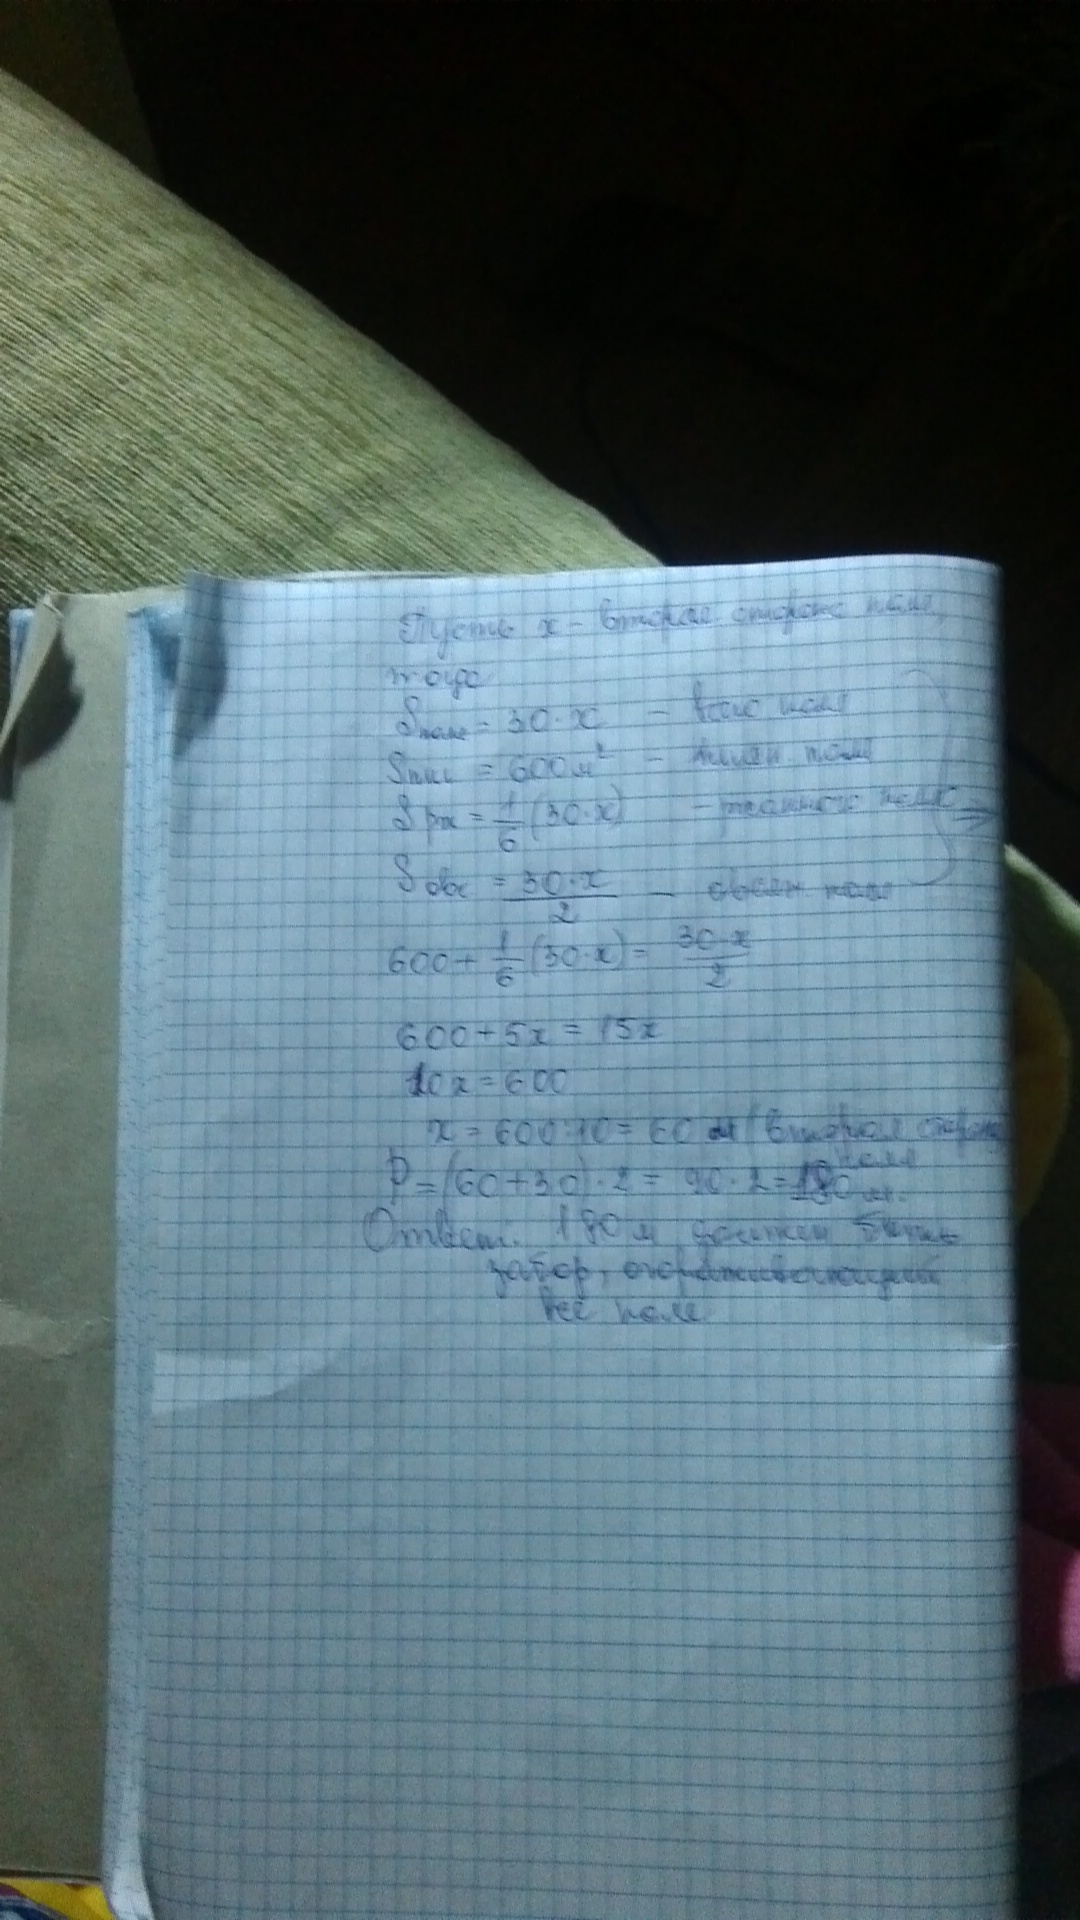 Пусть x - вторая сторона поля,
тогда
Sполе = 30·x - всего поля
Sпш = 600м² - пшен. поля
Sрж = 1/6 (30·x) - ржаного поля
Sовс = 30·x/2 - овсян. поля
600 + 1/6 (30·x) = 30·x/2
600 + 5x = 15x
10x = 600
x = 600:10 = 60 м (вторая сторона
поля
P = (60+30)·2 = 90·2 = 180 м.
Ответ: 180 м должен быть
забор, огораживающий
всё поле